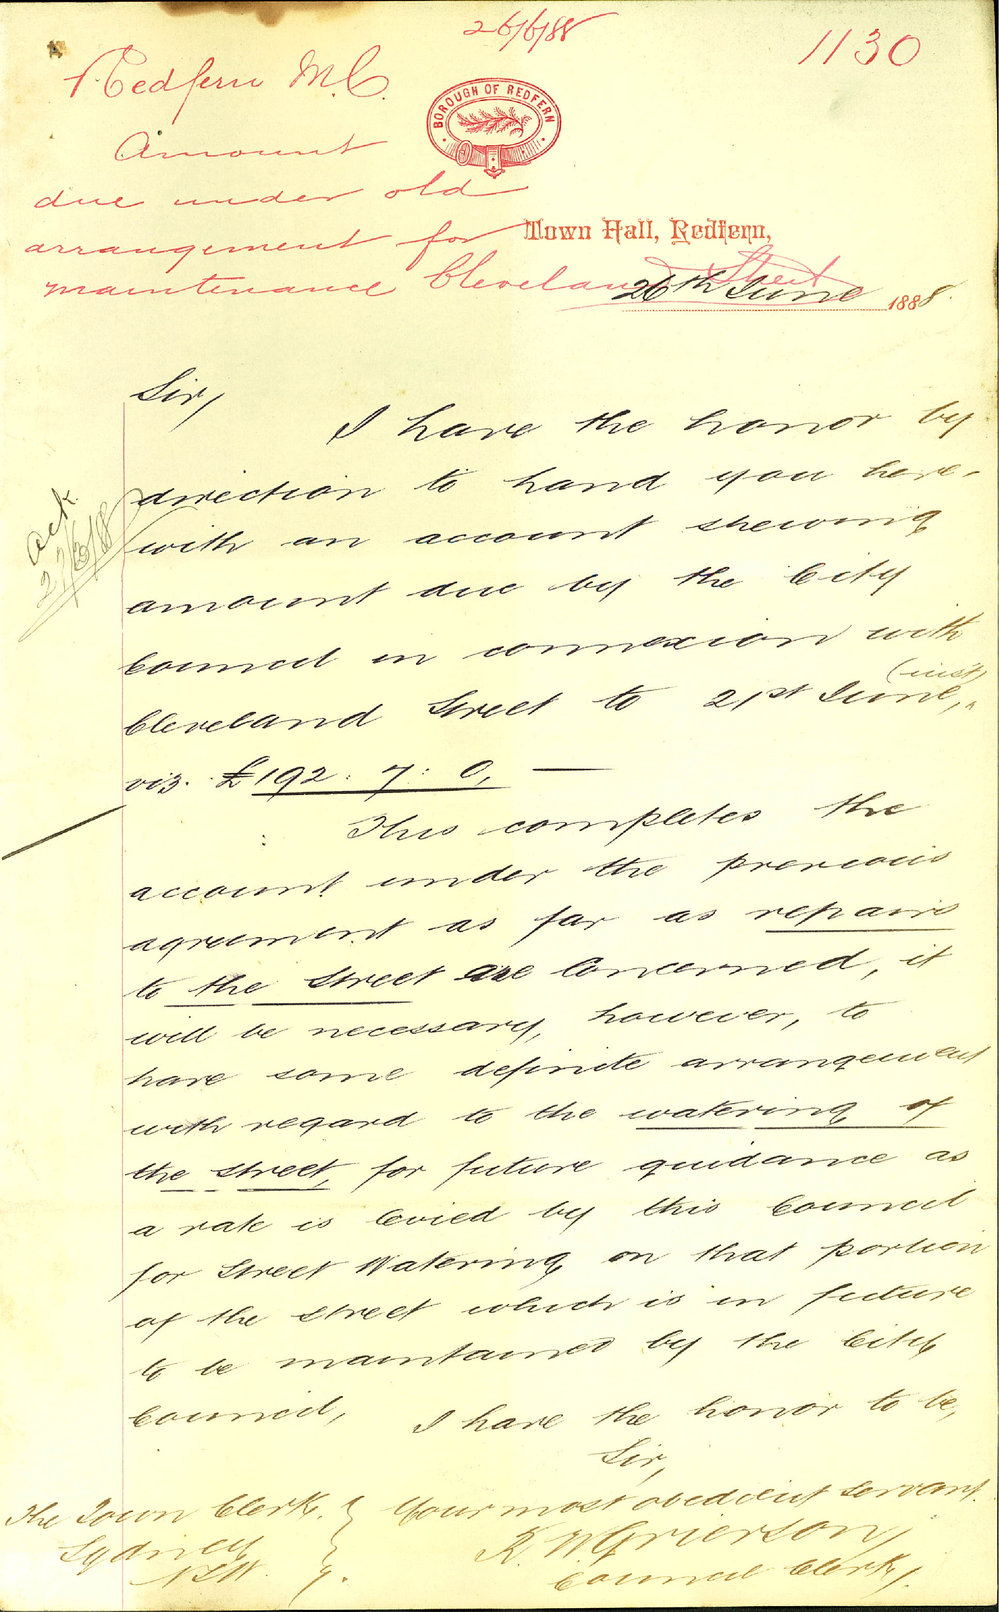 26/6/88
1130
Redfern M.C.
Amount
due under old
arrangement for
maintenance Cleveland Street
BOROUGH OF REDFERN
Town Hall, Redfern,
26th June 1888.
Sir,
I have the honor by
direction to hand you here-
with an account shewing
amount due by the City
Council in connexion with
Cleveland Street to 21st June, (inst)
viz. £192 : 7 : 0, —
This completes the
account under the previous
agreement as far as repairs
to the street are concerned, it
will be necessary, however, to
have some definite arrangement
with regard to the watering of
the street, for future guidance as
a rate is levied by this Council
for Street Watering on that portion
of the street which is in future
to be maintained by the City
Council,
I have the honor to be,
Sir,
Your most obedient servant.
Grierson,
Council Clerk.
The Town Clerk.
Sydney
NSW.
ack
27/6/88